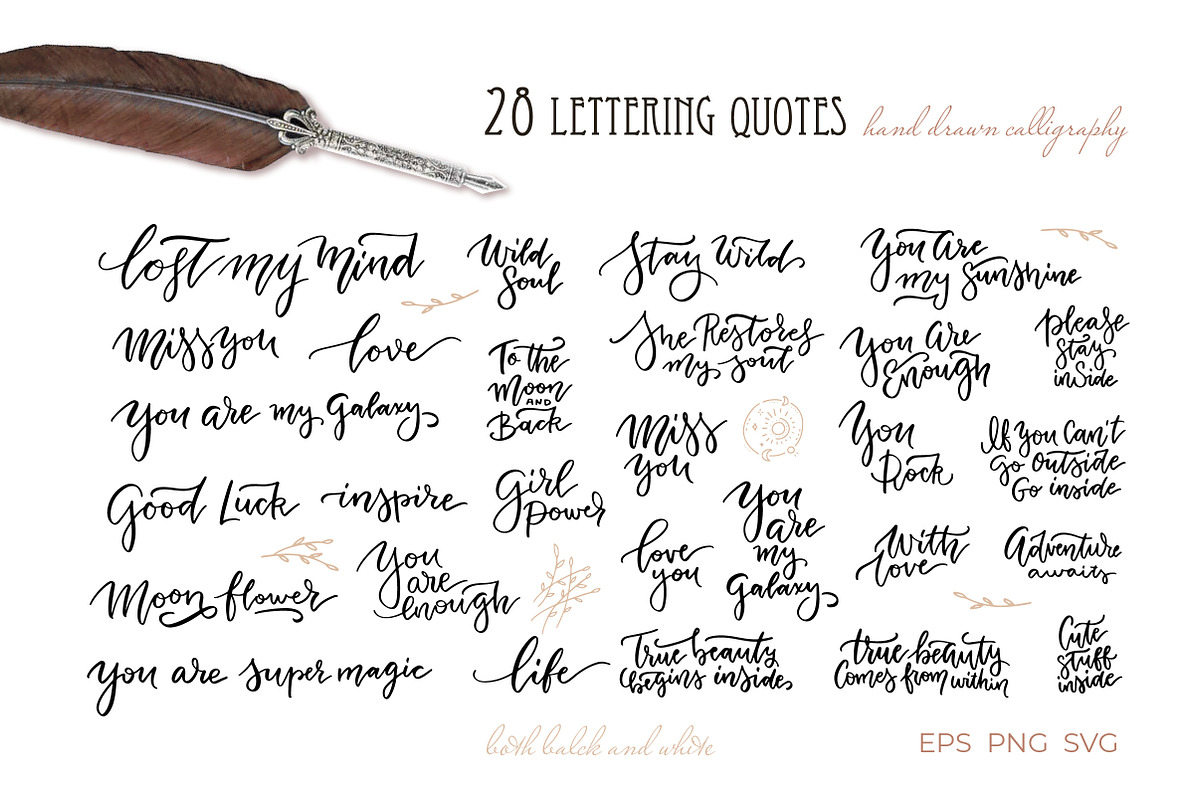 28 LETTERING QUOTES hand drawn calligraphy
lost my Mind
Wild
Soul
Stay Wild
You Are
my Sunshine
Miss you
love
To the
Moon
AND
Back
She Restores
my soul
You Are
Enough
please
stay
inside
You are my Galaxy
Miss
you
You
Rock
If You Can't
Go outside
Go inside
Good Luck
inspire
Girl
power
You
are
my
Galaxy
love
you
With
love
Adventure
awaits
Moon flower
You
are
enough
You are super magic
life
True beauty
begins inside
true beauty
Comes from within
Cute
stuff
inside
both balck and white
EPS PNG SVG